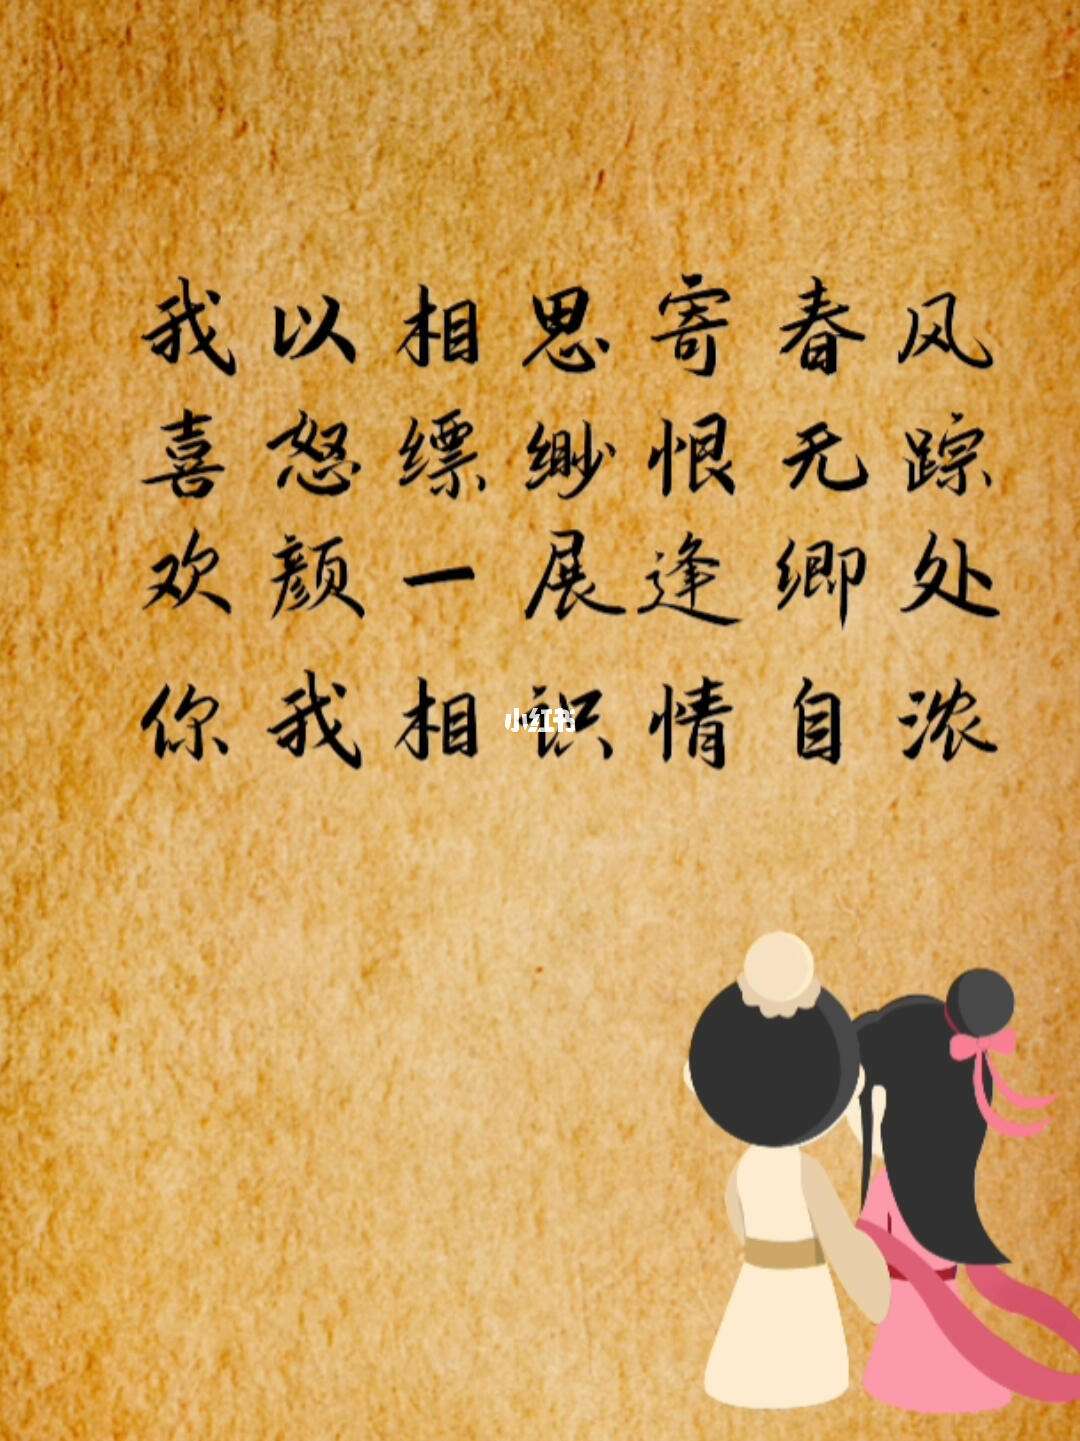 我以相思寄春风
喜怒缥缈恨无踪
欢颜一展逢卿处
你我相识情自浓
小红书